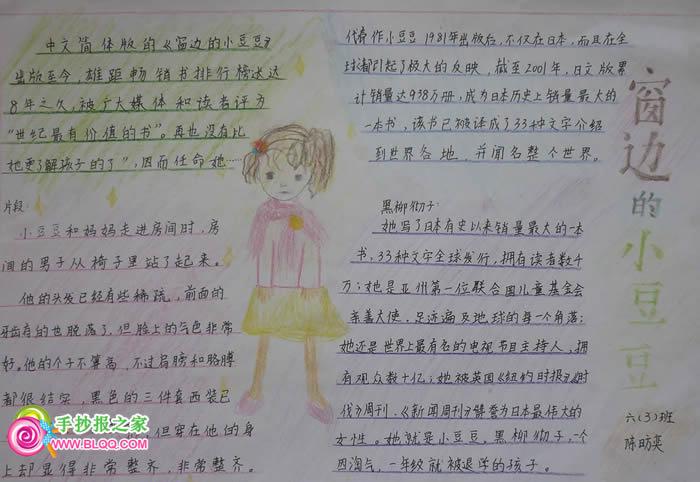 中文简体版的《窗边的小豆豆》
出版至今，雄距畅销书排行榜达达
8年之久，被广大媒体和读者评为
“世纪最有价值的书”。再也没有比
她更了解孩子的了”，因而任命她……
片段：
小豆豆和妈妈走进房间时，房
间的男子从椅子里站了起来。
他的头发已经有些稀疏，前面的
牙齿有的也脱落了，但脸上的气色非常
好。他的个子不算高，不过肩膀和胳膊
都很结实，黑色的三件套西装已
但穿在他的身
上却显得非常整齐，非常整齐。
手抄报之家
WWW.BLQQ.COM
代表作小豆豆1981年出版后，不仅在日本，而且在全
球都引起了极大的反映，截至2001年，日文版累
计销量达938万册，成为日本历史上销量最大的
一本书，该书已被译成了33种文字介绍
到世界各地，并闻名整个世界。
黑柳彻子：
她写了日本有史以来销量最大的一本
书，33种文字全球发行，拥有读者数千
万；她是亚州第一位联合国儿童基金会
亲善大使，足迹遍及地球的每一个角落；
她还是世界上最有名的电视节目主持人，拥
有观众数十亿；她被英国《纽约时报》《时
代》周刊，《新闻周刊》誉为日本最伟大的
女性。她就是小豆豆，黑柳彻子，一个
因淘气，一年级就被退学的孩子。
窗边的小豆豆
六（3）班